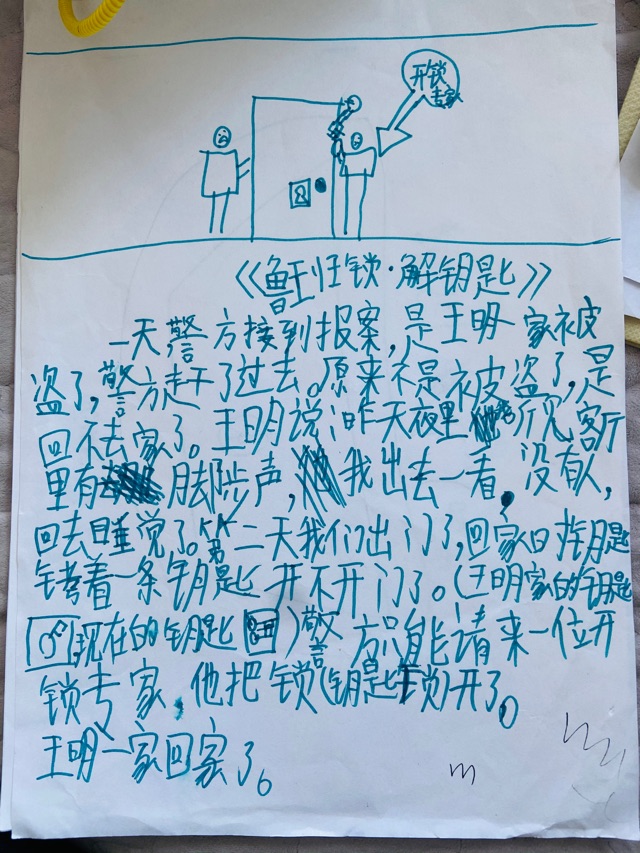 开锁
专家
归锁·解钥匙》
一天警方接到报案,是王明一家被
盗了,警方赶了过去。原来不是被盗了,是
回不去家了。王明说:昨天夜里 听见客厅
里有 脚步声, 我出去一看,没有人,
回去睡觉了。第二天我们出门了,回家时钥匙
铐着一条钥匙开不开门了。(王明家的钥匙
现在的钥匙 )警方只能请来一位开
锁专家,他把锁(钥匙锁)开了。
王明一家回家了。